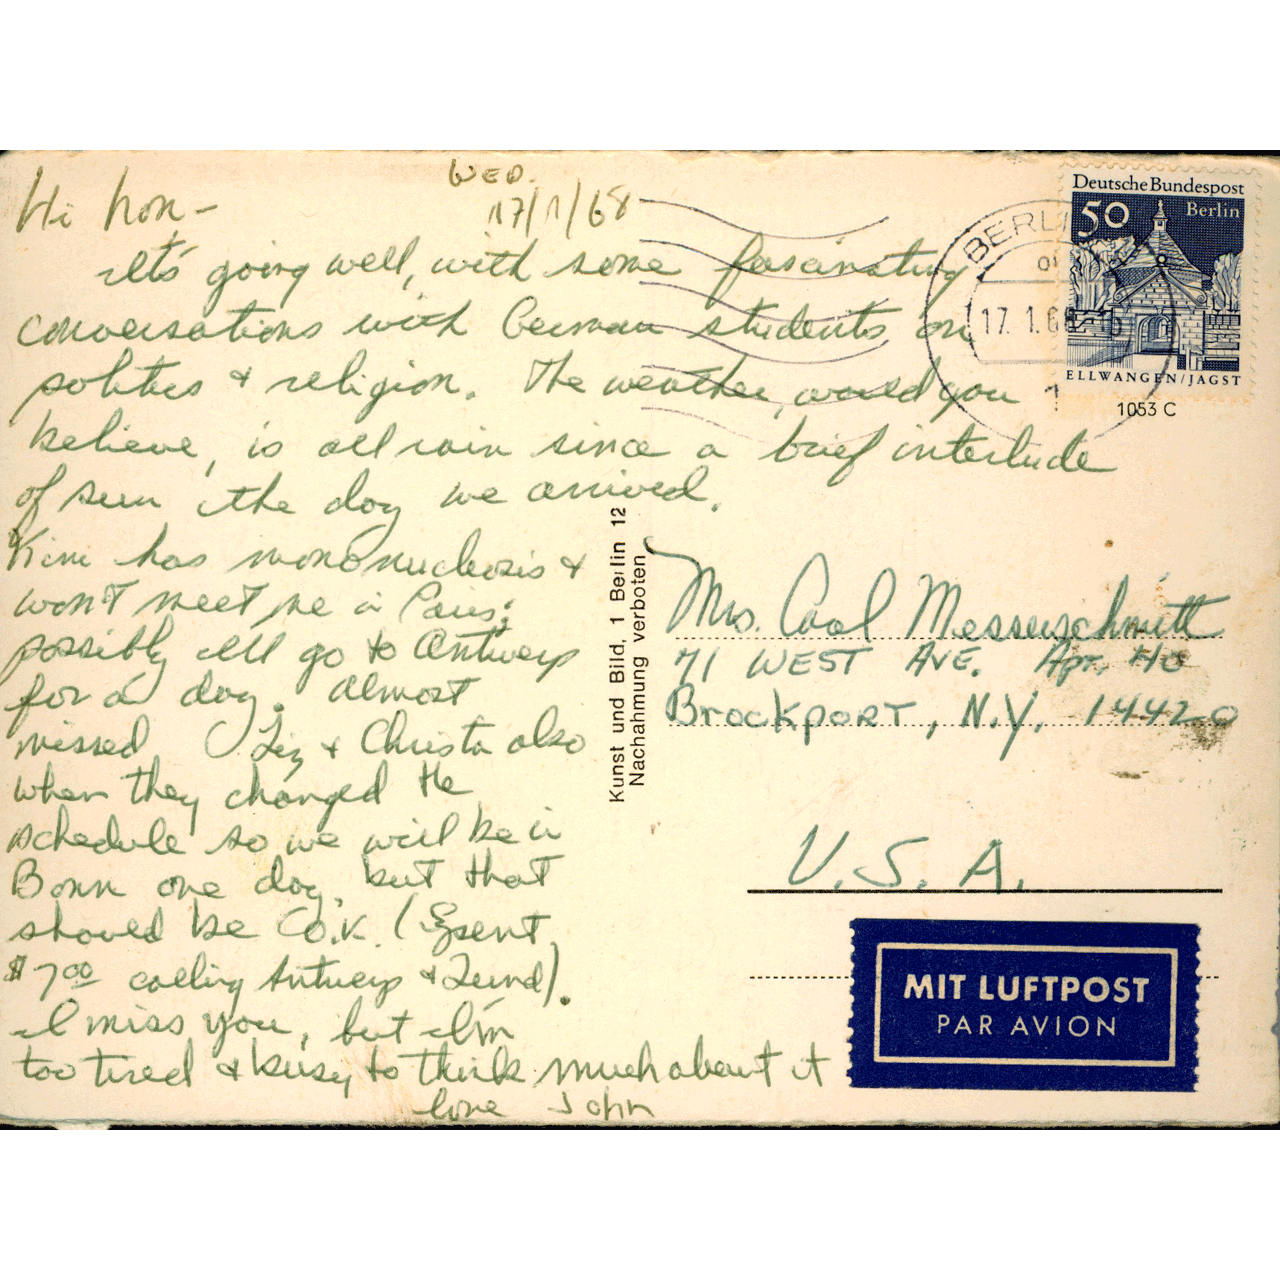 WED.
17/1/68
Hi hon-
It's going well, with some fascinating
conversations with German students on
politics & religion. The weather, would you
believe, is all rain since a brief interlude
of sun the day we arrived.
Kim has mononucleosis &
won't meet me in Paris;
possibly I'll go to Antwerp
for a day. Almost
missed Liz & Christa also
when they changed the
schedule so we will be in
Bonn one day, but that
should be O.K. (I spent
$7.00 calling Antwerp & Lund).
I miss you, but I'm
too tired & busy to think much about it
love John
Kunst und Bild, 1 Berlin 12
Nachahmung verboten
Deutsche Bundespost
50 Berlin
ELLWANGEN/JAGST
1053 C
BERLIN
17. 1. 68
1
Mrs. Carol Messerschmitt
71 WEST AVE. Apt. H8
Brockport, N.Y. 14420
U.S.A.
MIT LUFTPOST
PAR AVION